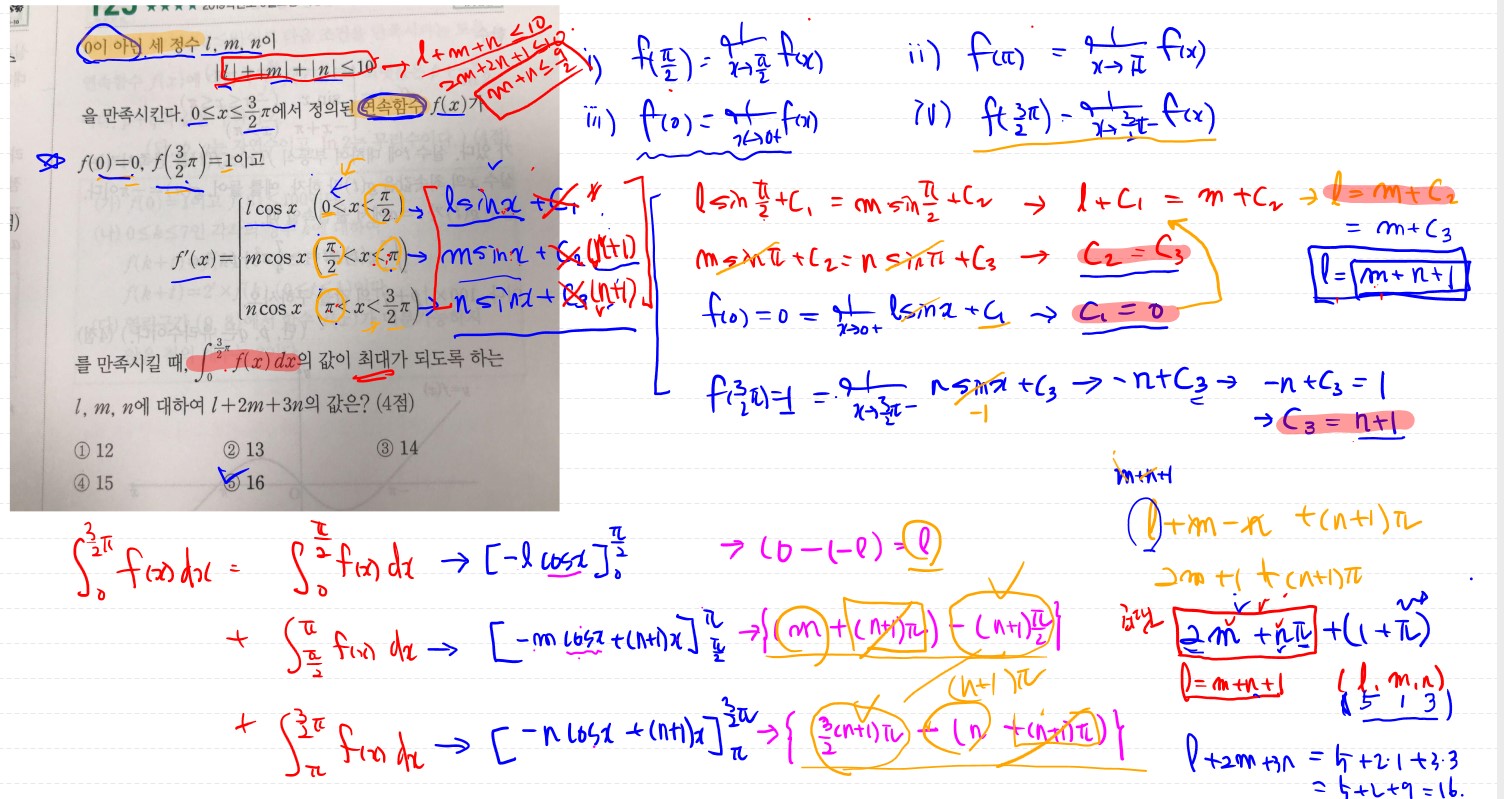 0이 아닌 세 정수 l, m, n이
|l|+|m|+|n|≤10
→ l+m+n≤10
2m+2n+1≤10
m+n≤9/2
을 만족시킨다. 0≤x≤3/2π에서 정의된 연속함수 f(x)가
f(0)=0, f(3/2π)=1이고
f′(x)= l cos x (0<x<π/2) → l sin x + C₁
m cos x (π/2<x<π) → m sin x + C₂ (n+1)
n cos x (π<x<3/2π) → n sin x + C₃ (n+1)
를 만족시킬 때, ∫₀^{3/2π} f(x)dx의 값이 최대가 되도록 하는
l, m, n에 대하여 l+2m+3n의 값은? (4점)
① 12 ② 13 ③ 14
④ 15 ⑤ 16
i) f(π/2) = lim x→π/2 f(x)
ii) f(π) = lim x→π f(x)
iii) f(0) = lim x→0+ f(x)
iv) f(3/2π) = lim x→3/2π− f(x)
l sin π/2 + C₁ = m sin π/2 + C₂ → l + C₁ = m + C₂ → l = m + C₂
= m + C₃
l = m+n+1
m sin π + C₂ = n sin π + C₃ → C₂ = C₃
f(0) = 0 = lim x→0+ l sin x + C₁ → C₁ = 0
f(3/2π) = 1 = lim x→3/2π− n sin x + C₃ → −n + C₃ → −n + C₃ = 1
−1
→ C₃ = n+1
∫₀^{3/2π} f(x)dx = ∫₀^{π/2} f(x)dx → [−l cos x]₀^{π/2} → (0−(−l) = l
+ ∫_{π/2}^{π} f(x)dx → [−m cos x + (n+1)x]_{π/2}^{π} → {(m + (n+1)π) − (n+1)π/2}
(n+1)π
+ ∫_π^{3/2π} f(x)dx → [−n cos x + (n+1)x]_π^{3/2π} → {3/2(n+1)π − (n + (n+1)π)}
m+n+1
l+m−n +(n+1)π
2m+1 + (n+1)π
2m + nπ + (1+π)
l = m+n+1
(l, m, n)
(5 1 3)
l+2m+3n = 5+2·1+3·3
= 5+2+9 = 16.